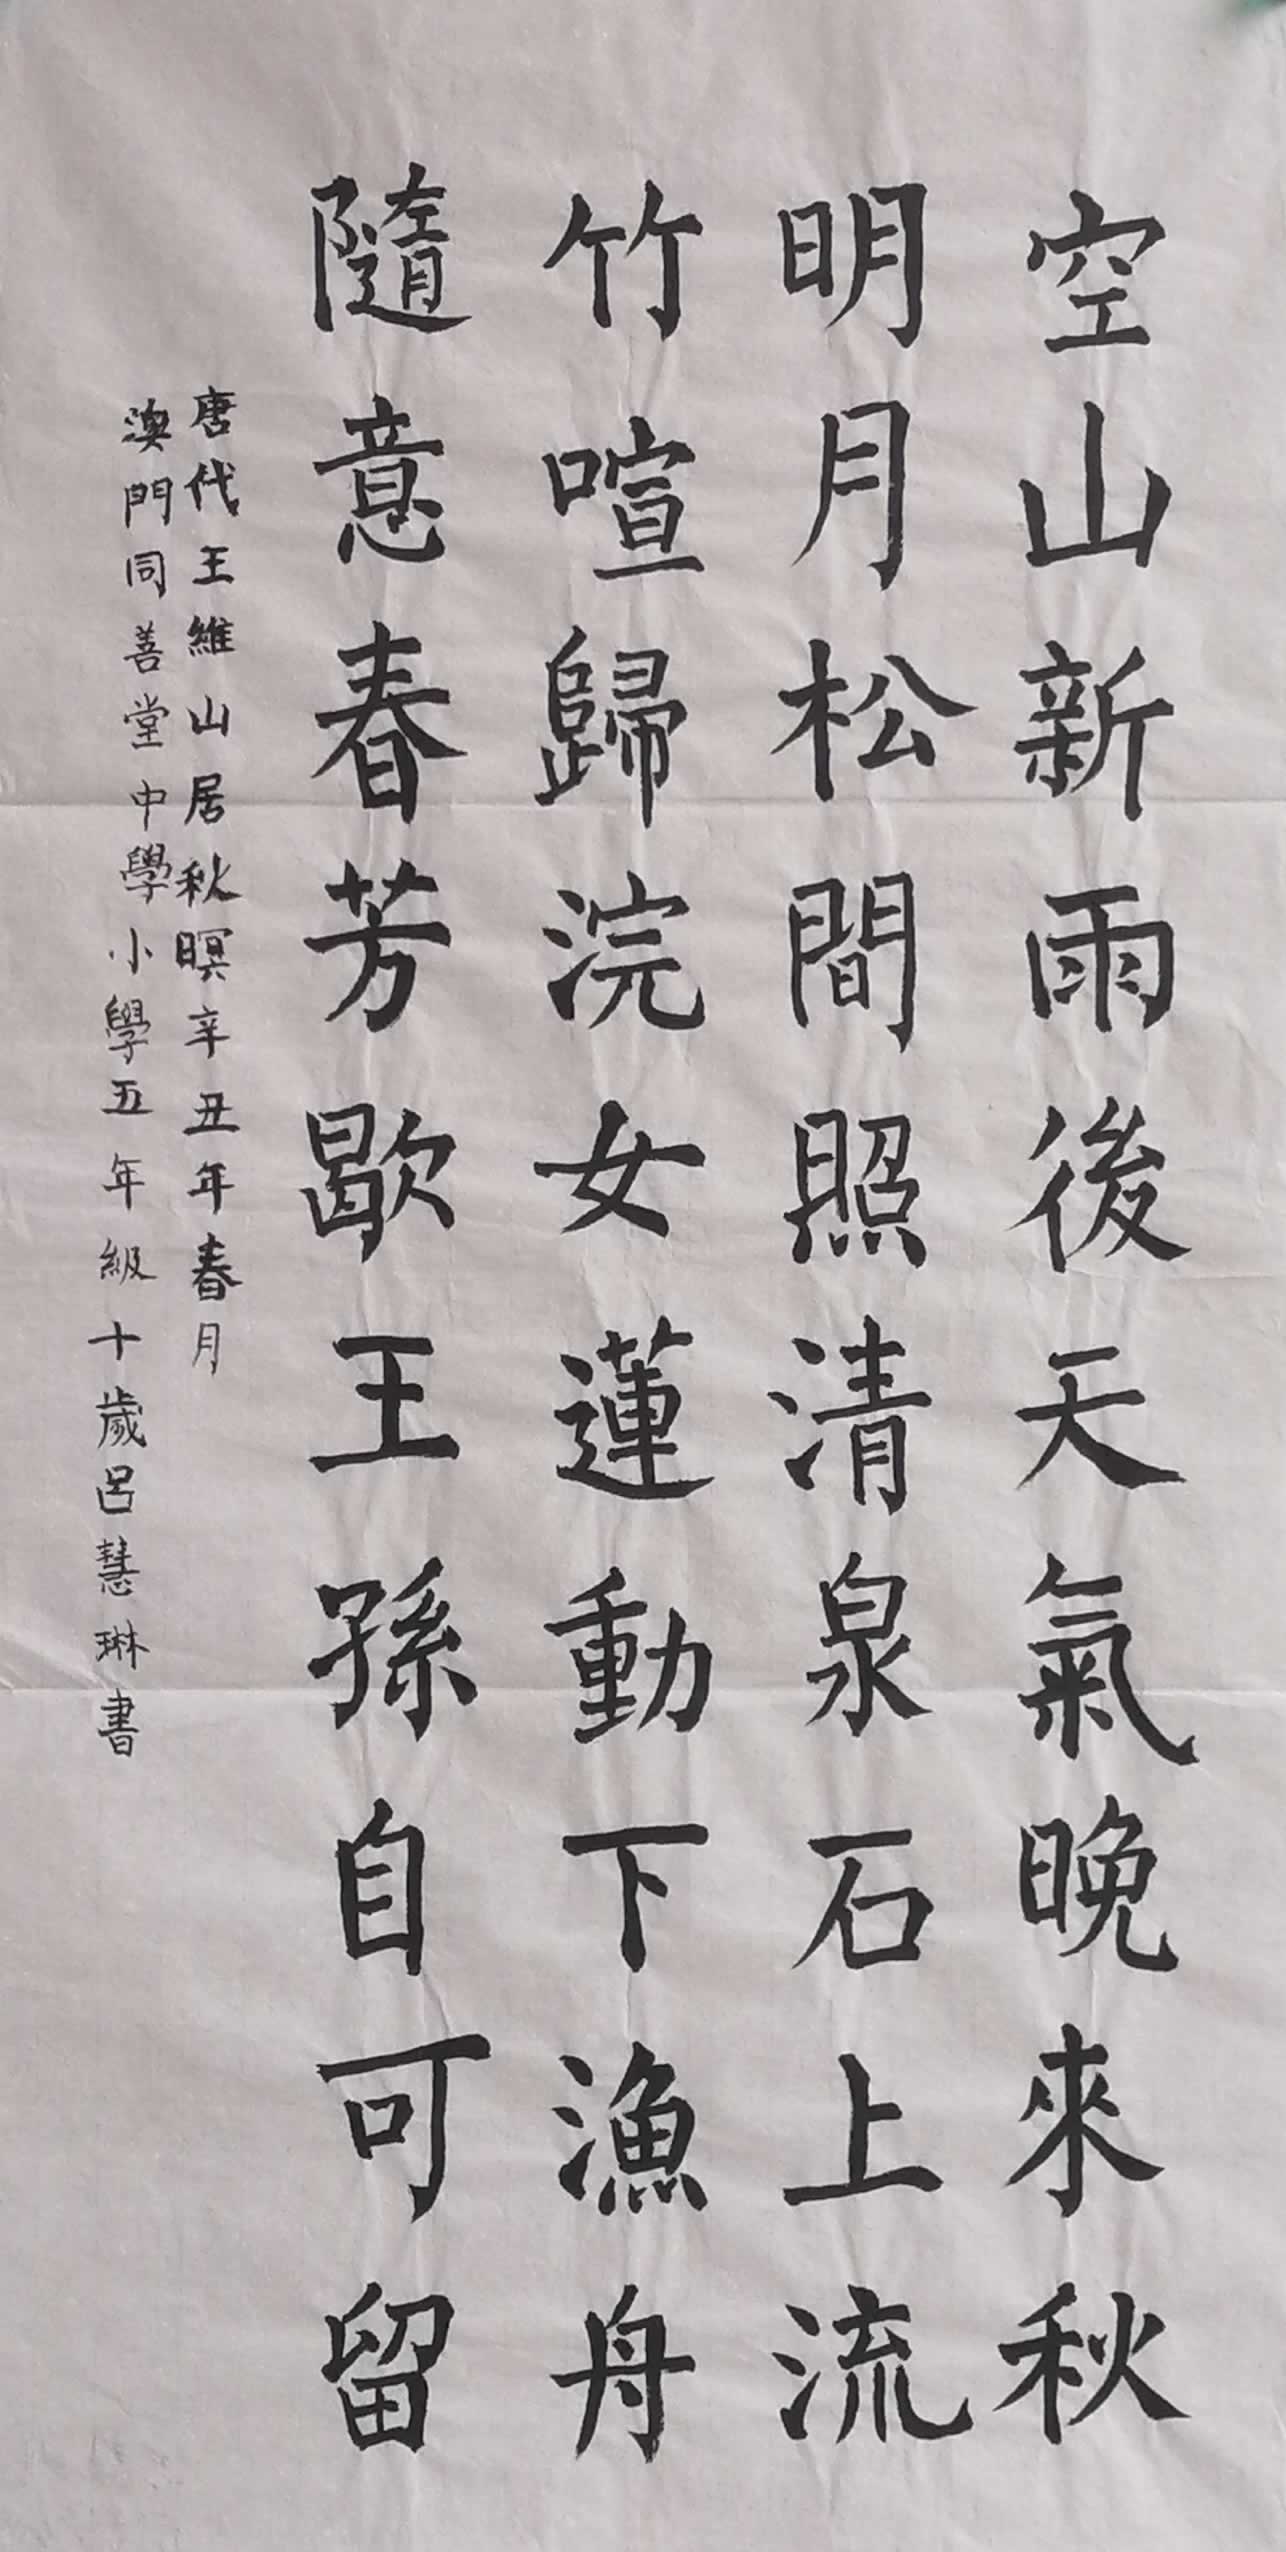 空山新雨後天氣晚來秋
明月松間照清泉石上流
竹喧歸浣女蓮動下漁舟
隨意春芳歇王孫自可留
唐代王維山居秋暝辛丑年春月
澳門同善堂中學小學五年級十歲呂慧琳書